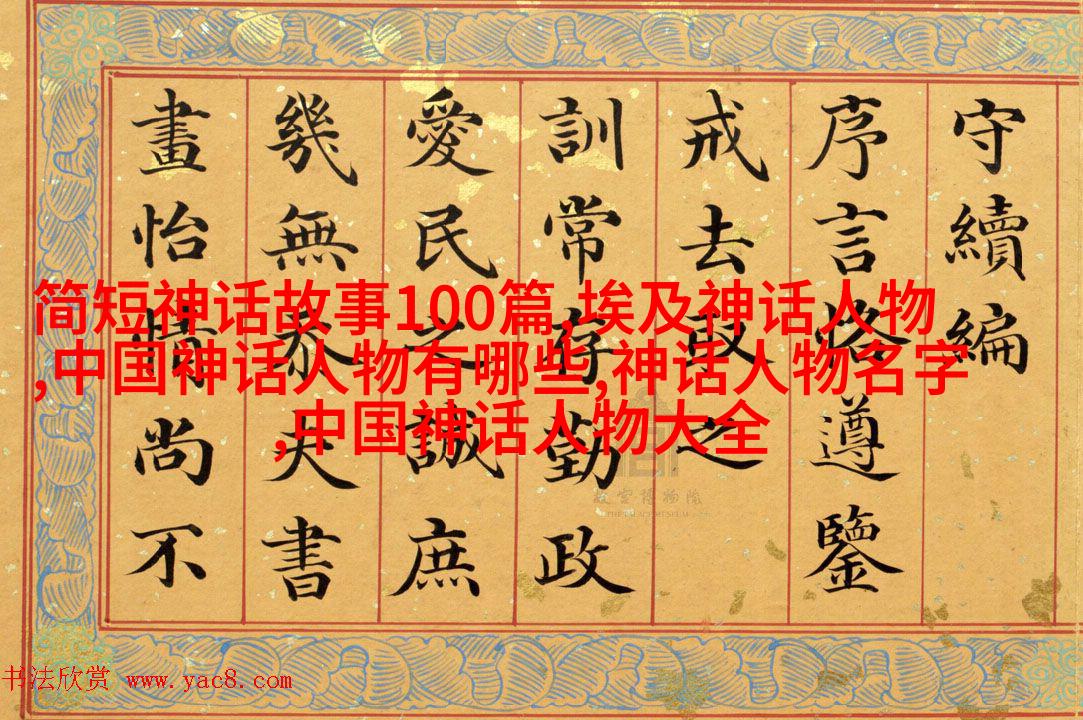 守續編
序言恪遵鑒
戒去取之
訓常存勤政
愛民之誠庶
幾無忝夫書
畫怡情尚不
简短神话故事100篇,埃及神话人物
,中国神话人物有哪些,神话人物名字
,中国神话人物大全
故宫博物院
THE PALACE MUSEUM
书法欣赏 www.yac8.com